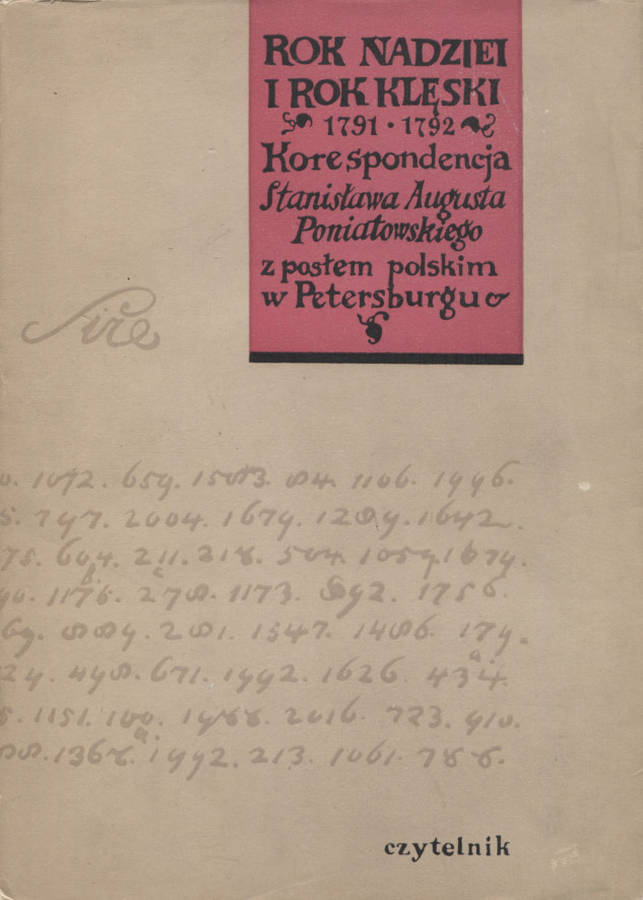 ROK NADZIEI
I ROK KLĘSKI
1791 · 1792
Korespondencja
Stanisława Augusta
Poniatowskiego
z posłem polskim
w Petersburgu
Sire
1072. 659. 1106. 1996.
797. 2004. 1679. 1642.
604. 211. 218. 504. 1059. 1679.
1176. 278. 1173. 892. 1756.
889. 281. 1547. 1486. 179.
498. 671. 1992. 1626. 434.
1151. 100. 1988. 2016. 723. 910.
1368. 1992. 213. 1061. 788.
czytelnik